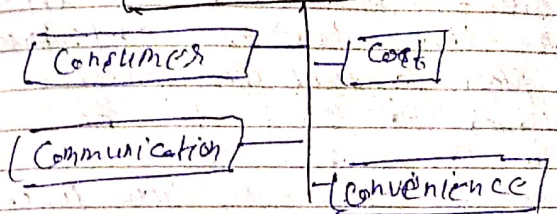 Consumer
Cost
Communication
Convenience